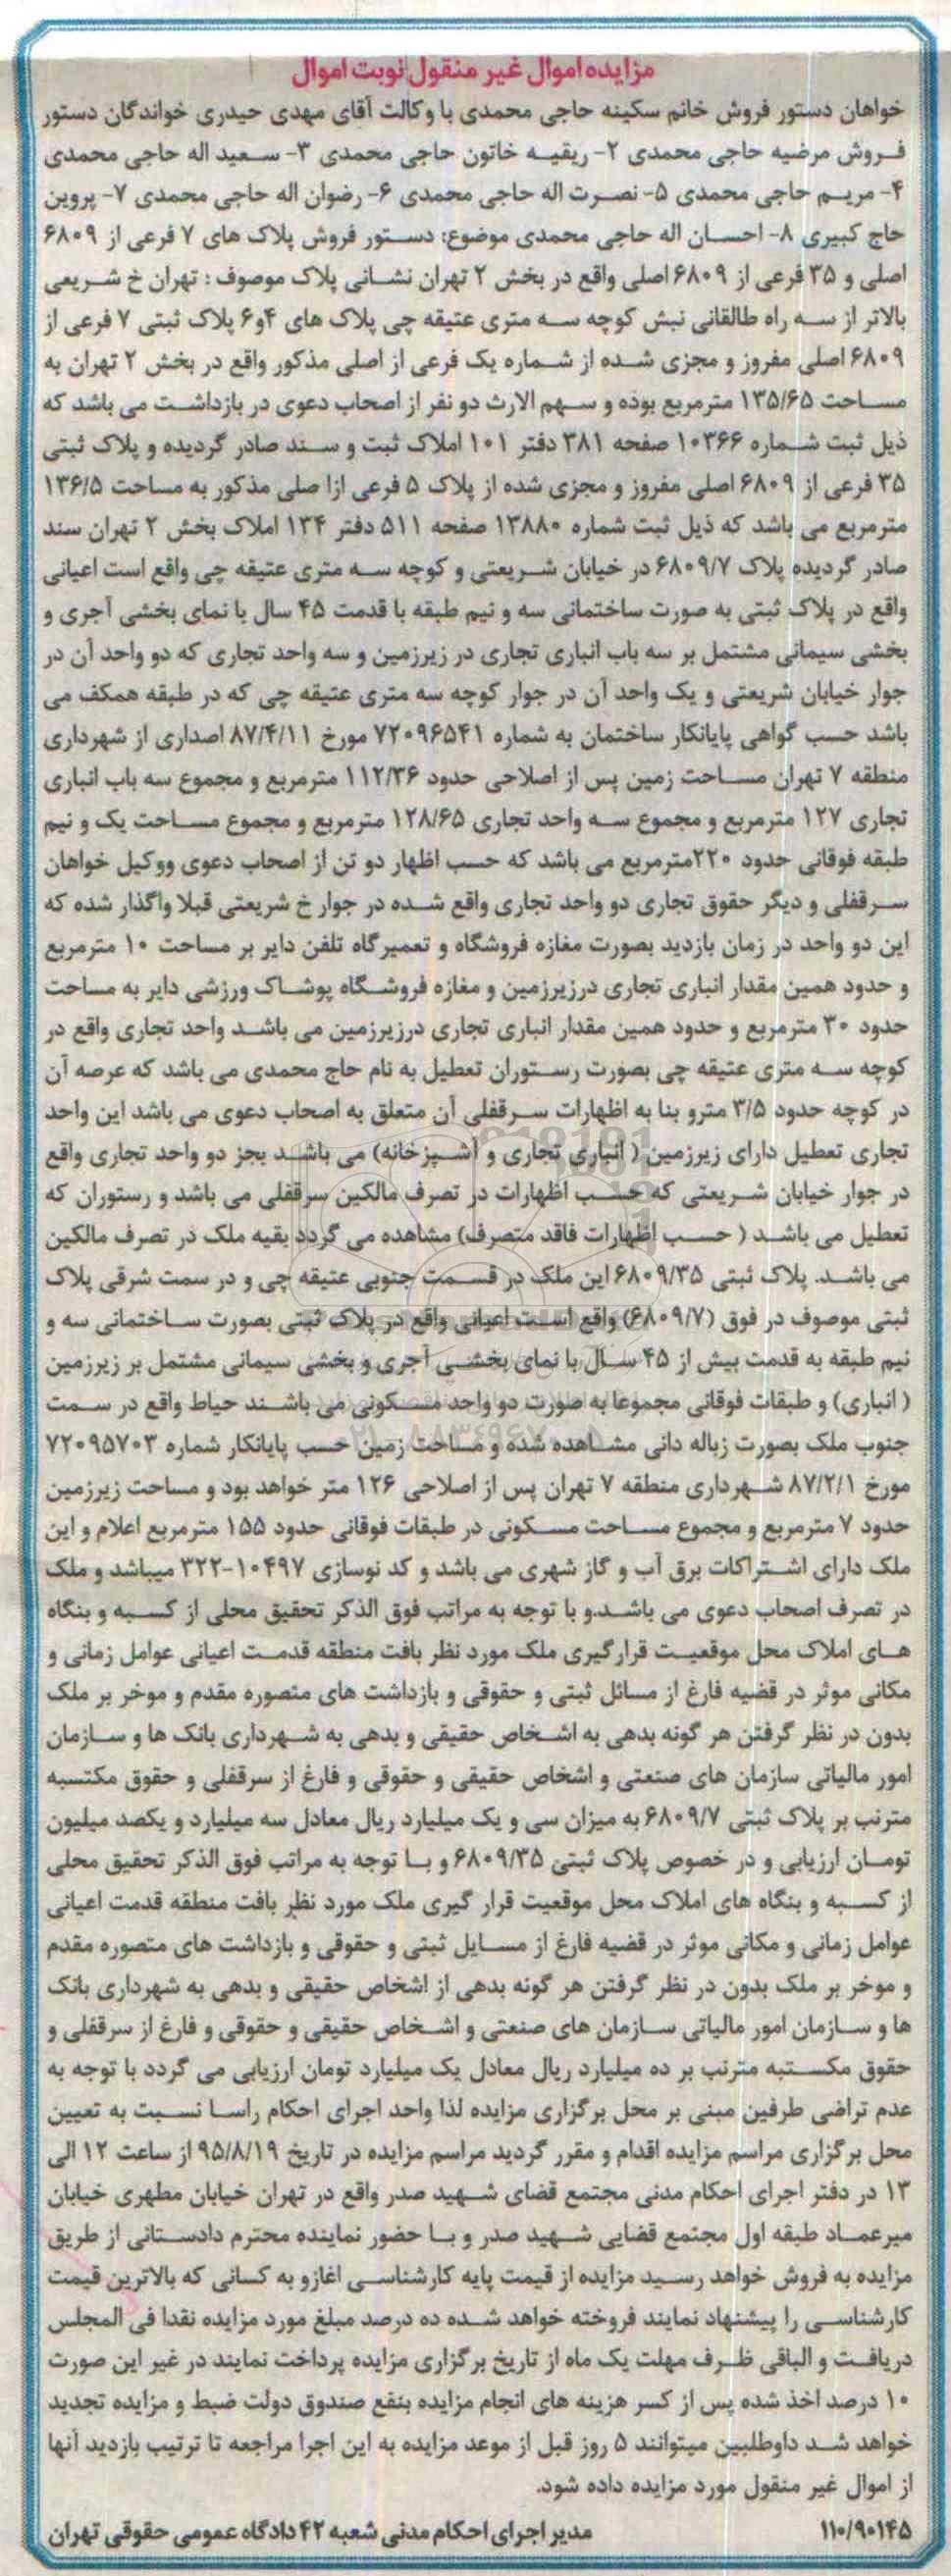 مزایده اموال غیر منقول نوبت اموال
خواهان دستور فروش خانم سکینه حاجی محمدی با وکالت آقای مهدی حیدری خواندگان دستور
فروش مرضیه حاجی محمدی ۲- ریقیه خاتون حاجی محمدی ۳- سعید اله حاجی محمدی
۴- مریم حاجی محمدی ۵- نصرت اله حاجی محمدی ۶- رضوان اله حاجی محمدی ۷- پروین
حاج کبیری ۸- احسان اله حاجی محمدی موضوع: دستور فروش پلاک های ۷ فرعی از ۶۸۰۹
اصلی و ۳۵ فرعی از ۶۸۰۹ اصلی واقع در بخش ۲ تهران نشانی پلاک موصوف : تهران خ شریعی
بالاتر از سه راه طالقانی نبش کوچه سه متری عتیقه چی پلاک های ۴و۶ پلاک ثبتی ۷ فرعی از
۶۸۰۹ اصلی مفروز و مجزی شده از شماره یک فرعی از اصلی مذکور واقع در بخش ۲ تهران به
مساحت ۱۳۵/۶۵ مترمربع بوده و سهم الارث دو نفر از اصحاب دعوی در بازداشت می باشد که
ذیل ثبت شماره ۱۰۳۶۶ صفحه ۳۸۱ دفتر ۱۰۱ املاک ثبت و سند صادر گردیده و پلاک ثبتی
۳۵ فرعی از ۶۸۰۹ اصلی مفروز و مجزی شده از پلاک ۵ فرعی ازا صلی مذکور به مساحت ۱۳۶/۵
مترمربع می باشد که ذیل ثبت شماره ۱۳۸۸۰ صفحه ۵۱۱ دفتر ۱۳۴ املاک بخش ۲ تهران سند
صادر گردیده پلاک ۶۸۰۹/۷ در خیابان شریعتی و کوچه سه متری عتیقه چی واقع است اعیانی
واقع در پلاک ثبتی به صورت ساختمانی سه و نیم طبقه با قدمت ۴۵ سال با نمای بخشی آجری و
بخشی سیمانی مشتمل بر سه باب انباری تجاری در زیرزمین و سه واحد تجاری که دو واحد آن در
جوار خیابان شریعتی و یک واحد آن در جوار کوچه سه متری عتیقه چی که در طبقه همکف می
باشد حسب گواهی پایانکار ساختمان به شماره ۷۲۰۹۶۵۴۱ مورخ ۸۷/۴/۱۱ اصداری از شهرداری
منطقه ۷ تهران مساحت زمین پس از اصلاحی حدود ۱۱۲/۳۶ مترمربع و مجموع سه باب انباری
تجاری ۱۲۷ مترمربع و مجموع سه واحد تجاری ۱۲۸/۶۵ مترمربع و مجموع مساحت یک و نیم
طبقه فوقانی حدود ۲۲۰مترمربع می باشد که حسب اظهار دو تن از اصحاب دعوی ووکیل خواهان
سرقفلی و دیگر حقوق تجاری دو واحد تجاری واقع شده در جوار خ شریعتی قبلا واگذار شده که
این دو واحد در زمان بازدید بصورت مغازه فروشگاه و تعمیرگاه تلفن دایر بر مساحت ۱۰ مترمربع
و حدود همین مقدار انباری تجاری درزیرزمین و مغازه فروشگاه پوشاک ورزشی دایر به مساحت
حدود ۳۰ مترمربع و حدود همین مقدار انباری تجاری درزیرزمین می باشد واحد تجاری واقع در
کوچه سه متری عتیقه چی بصورت رستوران تعطیل به نام حاج محمدی می باشد که عرصه آن
در کوچه حدود ۳/۵ مترو بنا به اظهارات سرقفلی آن متعلق به اصحاب دعوی می باشد این واحد
تجاری تعطیل دارای زیرزمین ( انباری تجاری و آشپزخانه) می باشد بجز دو واحد تجاری واقع
در جوار خیابان شریعتی که حسب اظهارات در تصرف مالکین سرقفلی می باشد و رستوران که
تعطیل می باشد ( حسب اظهارات فاقد متصرف) مشاهده می گردد بقیه ملک در تصرف مالکین
می باشد. پلاک ثبتی ۶۸۰۹/۳۵ این ملک در قسمت جنوبی عتیقه چی و در سمت شرقی پلاک
ثبتی موصوف در فوق (۶۸۰۹/۷) واقع است اعیانی واقع در پلاک ثبتی بصورت ساختمانی سه و
نیم طبقه به قدمت بیش از ۴۵ سال با نمای بخشی آجری و بخشی سیمانی مشتمل بر زیرزمین
( انباری) و طبقات فوقانی مجموعا به صورت دو واحد مسکونی می باشند حیاط واقع در سمت
جنوب ملک بصورت زباله دانی مشاهده شده و مساحت زمین حسب پایانکار شماره ۷۲۰۹۵۷۰۳
مورخ ۸۷/۲/۱ شهرداری منطقه ۷ تهران پس از اصلاحی ۱۲۶ متر خواهد بود و مساحت زیرزمین
حدود ۷ مترمربع و مجموع مساحت مسکونی در طبقات فوقانی حدود ۱۵۵ مترمربع اعلام و این
ملک دارای اشتراکات برق آب و گاز شهری می باشد و کد نوسازی ۱۰۴۹۷-۳۲۲ میباشد و ملک
در تصرف اصحاب دعوی می باشد.و با توجه به مراتب فوق الذکر تحقیق محلی از کسبه و بنگاه
های املاک محل موقعیت قرارگیری ملک مورد نظر بافت منطقه قدمت اعیانی عوامل زمانی و
مکانی موثر در قضیه فارغ از مسائل ثبتی و حقوقی و بازداشت های متصوره مقدم و موخر بر ملک
بدون در نظر گرفتن هر گونه بدهی به اشخاص حقیقی و بدهی به شهرداری بانک ها و سازمان
امور مالیاتی سازمان های صنعتی و اشخاص حقیقی و حقوقی و فارغ از سرقفلی و حقوق مکتسبه
مترنب بر پلاک ثبتی ۶۸۰۹/۷ به میزان سی و یک میلیارد ریال معادل سه میلیارد و یکصد میلیون
تومان ارزیابی و در خصوص پلاک ثبتی ۶۸۰۹/۳۵ و با توجه به مراتب فوق الذکر تحقیق محلی
از کسبه و بنگاه های املاک محل موقعیت قرار گیری ملک مورد نظر بافت منطقه قدمت اعیانی
عوامل زمانی و مکانی موثر در قضیه فارغ از مسایل ثبتی و حقوقی و بازداشت های متصوره مقدم
و موخر بر ملک بدون در نظر گرفتن هر گونه بدهی از اشخاص حقیقی و بدهی به شهرداری بانک
ها و سازمان امور مالیاتی سازمان های صنعتی و اشخاص حقیقی و حقوقی و فارغ از سرقفلی و
حقوق مکستبه مترنب بر ده میلیارد ریال معادل یک میلیارد تومان ارزیابی می گردد با توجه به
عدم تراضی طرفین مبنی بر محل برگزاری مزایده لذا واحد اجرای احکام راسا نسبت به تعیین
محل برگزاری مراسم مزایده اقدام و مقرر گردید مراسم مزایده در تاریخ ۹۵/۸/۱۹ از ساعت ۱۲ الی
۱۳ در دفتر اجرای احکام مدنی مجتمع قضای شهید صدر واقع در تهران خیابان مطهری خیابان
میرعماد طبقه اول مجتمع قضایی شهید صدر و با حضور نماینده محترم دادستانی از طریق
مزایده به فروش خواهد رسید مزایده از قیمت پایه کارشناسی اغازو به کسانی که بالاترین قیمت
کارشناسی را پیشنهاد نمایند فروخته خواهد شده ده درصد مبلغ مورد مزایده نقدا فی المجلس
دریافت و الباقی ظرف مهلت یک ماه از تاریخ برگزاری مزایده پرداخت نمایند در غیر این صورت
۱۰ درصد اخذ شده پس از کسر هزینه های انجام مزایده بنفع صندوق دولت ضبط و مزایده تجدید
خواهد شد داوطلبین میتوانند ۵ روز قبل از موعد مزایده به این اجرا مراجعه تا ترتیب بازدید آنها
از اموال غیر منقول مورد مزایده داده شود.
۱۱۰/۹۰۱۴۵ مدیر اجرای احکام مدنی شعبه ۴۲ دادگاه عمومی حقوقی تهران